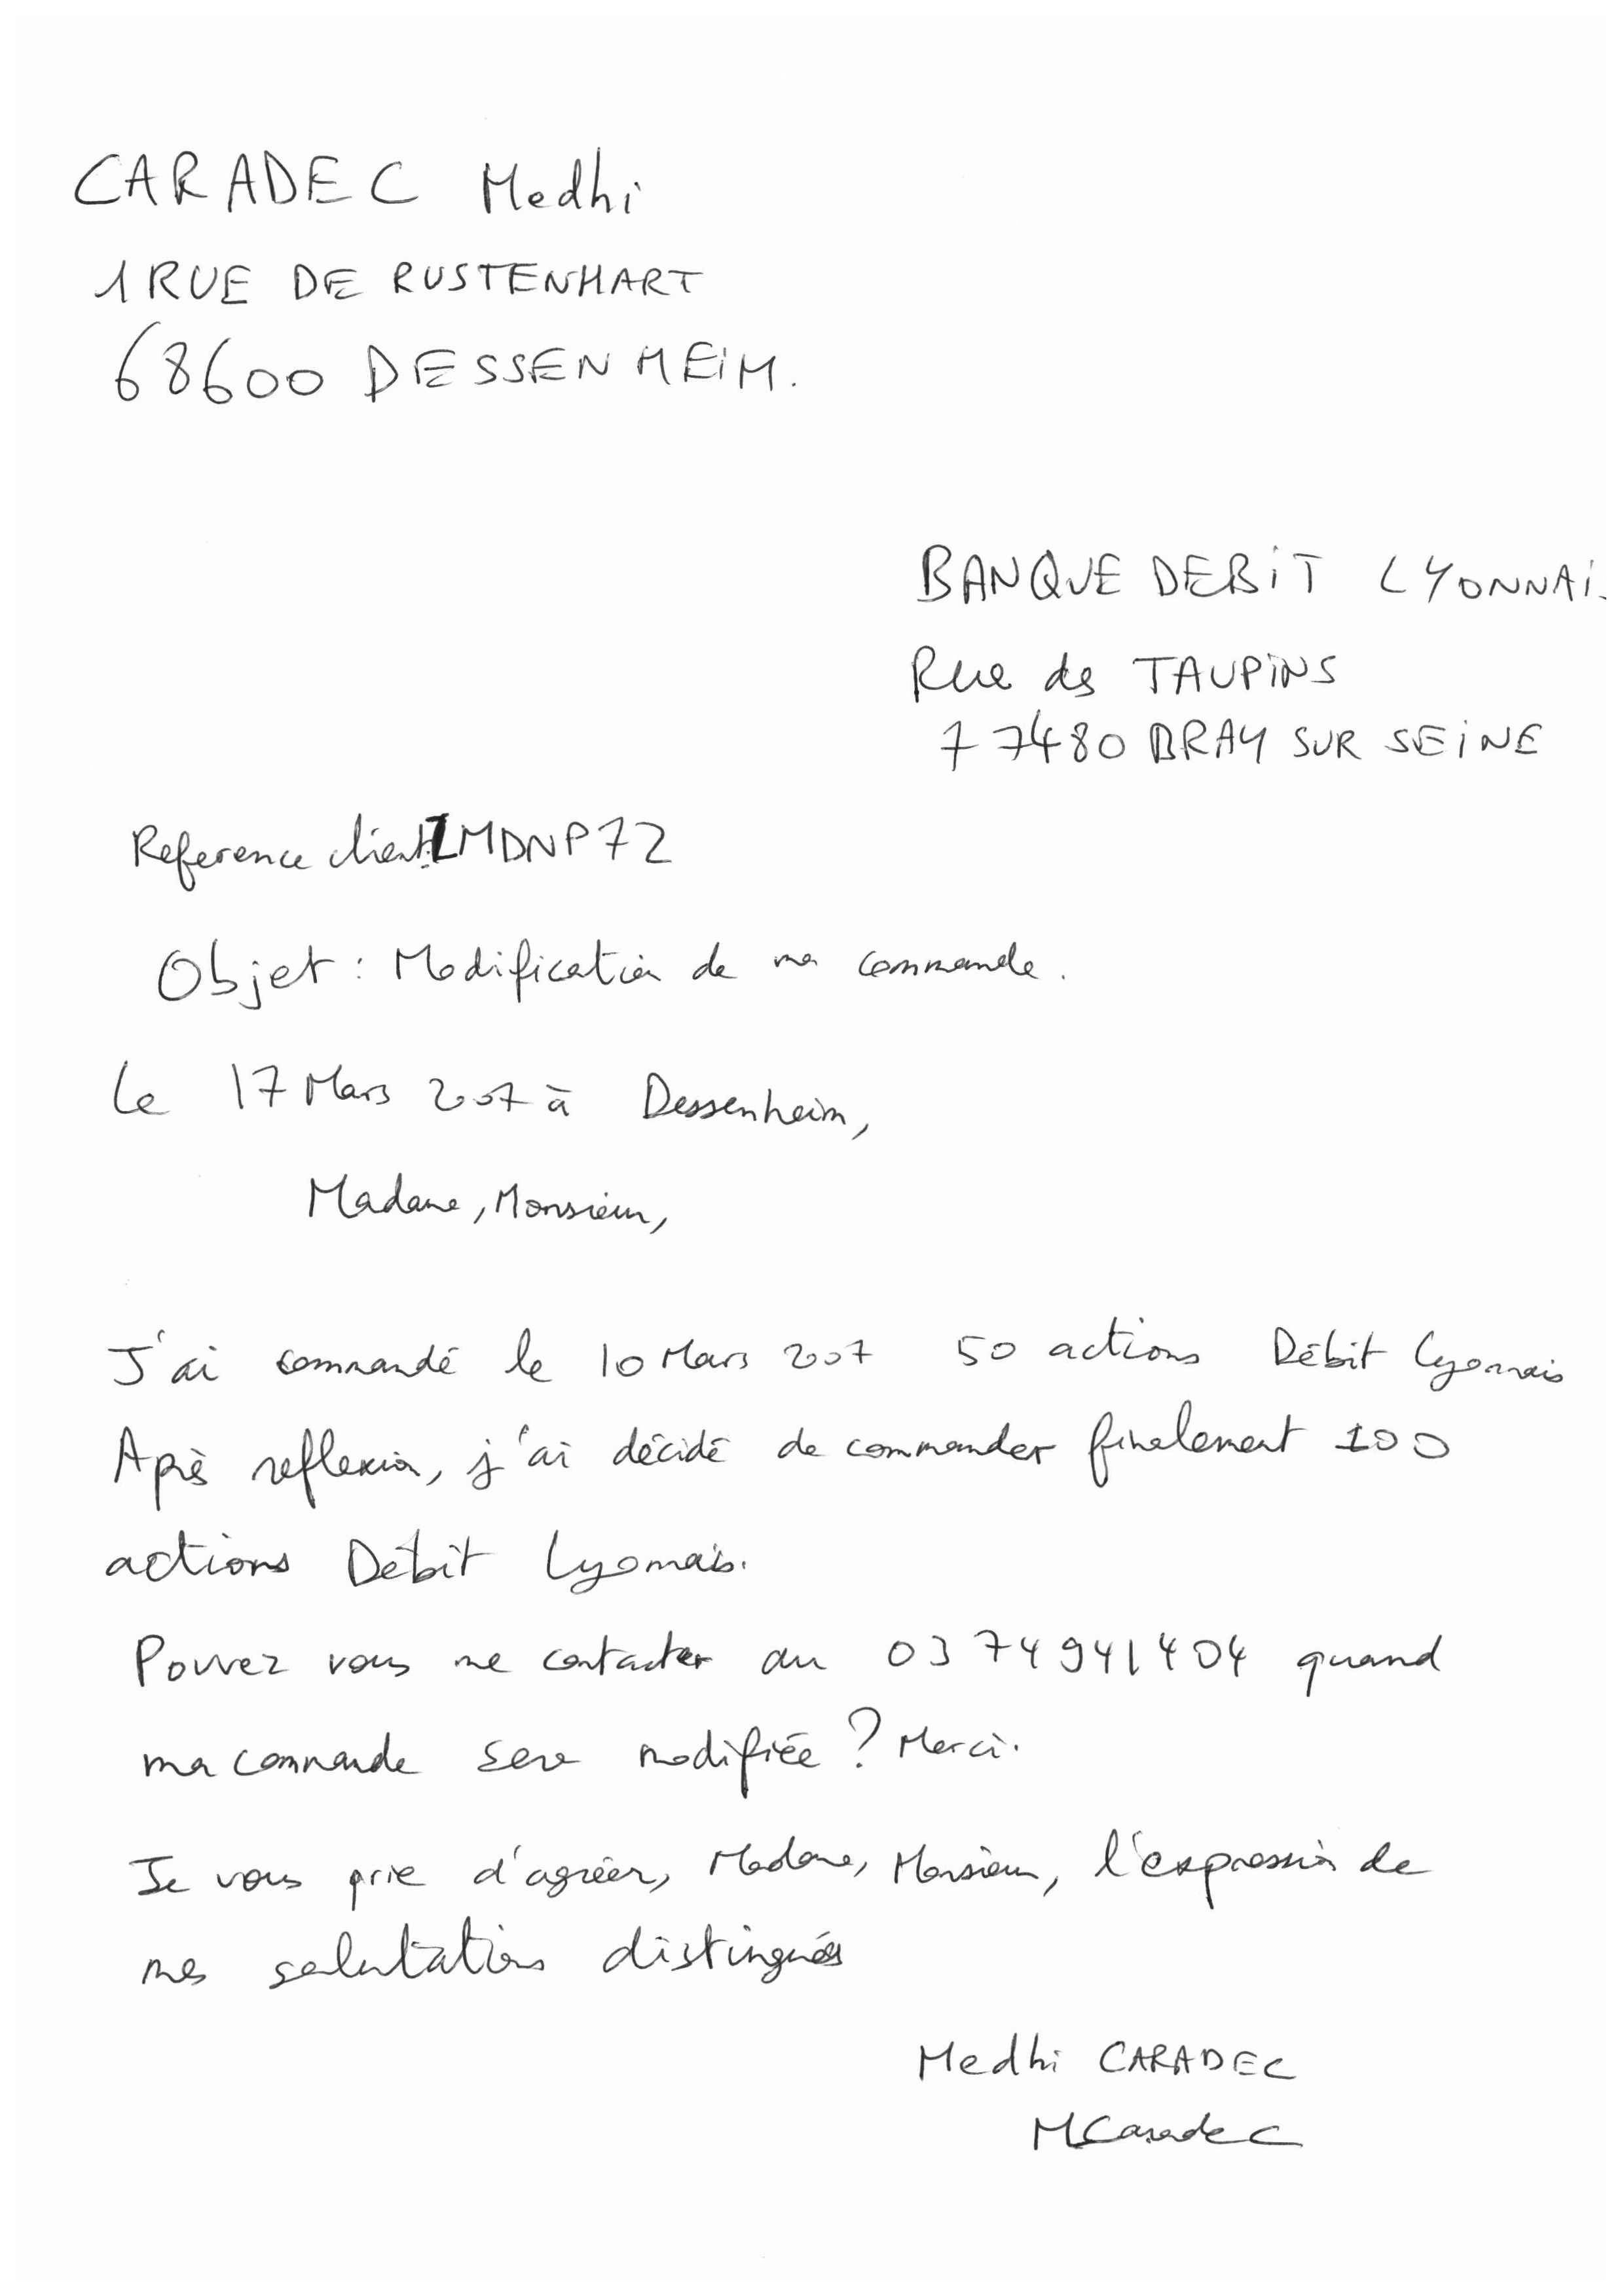 CARADEC Medhi
1 RUE DE RUSTENHART
68600 DESSENHEIM.
BANQUE DEBIT LYONNAI
Rue des TAUPINS
77480 BRAY SUR SEINE
Reference client: ZMDNP72
Objet : Modification de ma commande.
Le 17 Mars 2007 à Dessenheim,
Madame, Monsieur,
J'ai commandé le 10 Mars 2007 50 actions Débit Lyonnais
Après reflexion, j'ai décidé de commander finalement 100
actions Débit Lyonnais.
Pouvez vous me contacter au 03 74 94 14 04 quand
ma commande sera modifiée ? Merci.
Je vous prie d'agréer, Madame, Monsieur, l'expression de
mes salutations distinguées
Medhi CARADEC
MCaradec